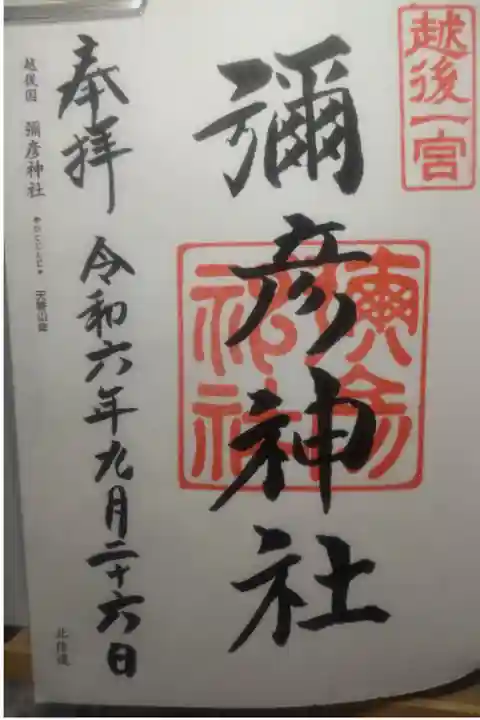 越後一宮
彌彦神社
彌彦神社
奉拝 令和六年九月二十六日
越後国 彌彦神社
北陸道